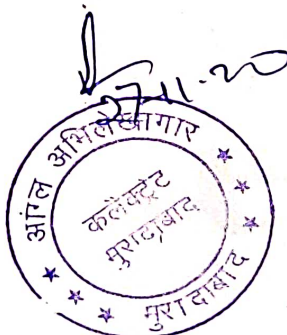 27-11-20
आंग्ल अभिलेखागार
कलेक्ट्रेट
मुरादाबाद
मुरादाबाद